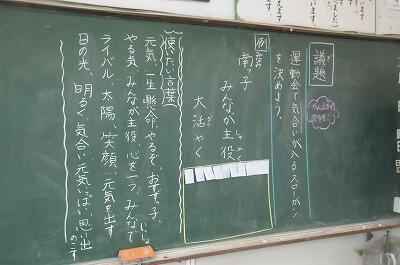 議題
運動会で気合いが入るスローガン
を決めよう。
例
南っ子
みんなが主役
大活やく
使いたい言葉
元気、一生懸命、やるぞ、おす、
やる気、みんなが主役、心を一つ、みんなで
ライバル、太陽、笑顔、元気を出す
日の光、明るく、気合い、元気いっぱい、思い出
のこす